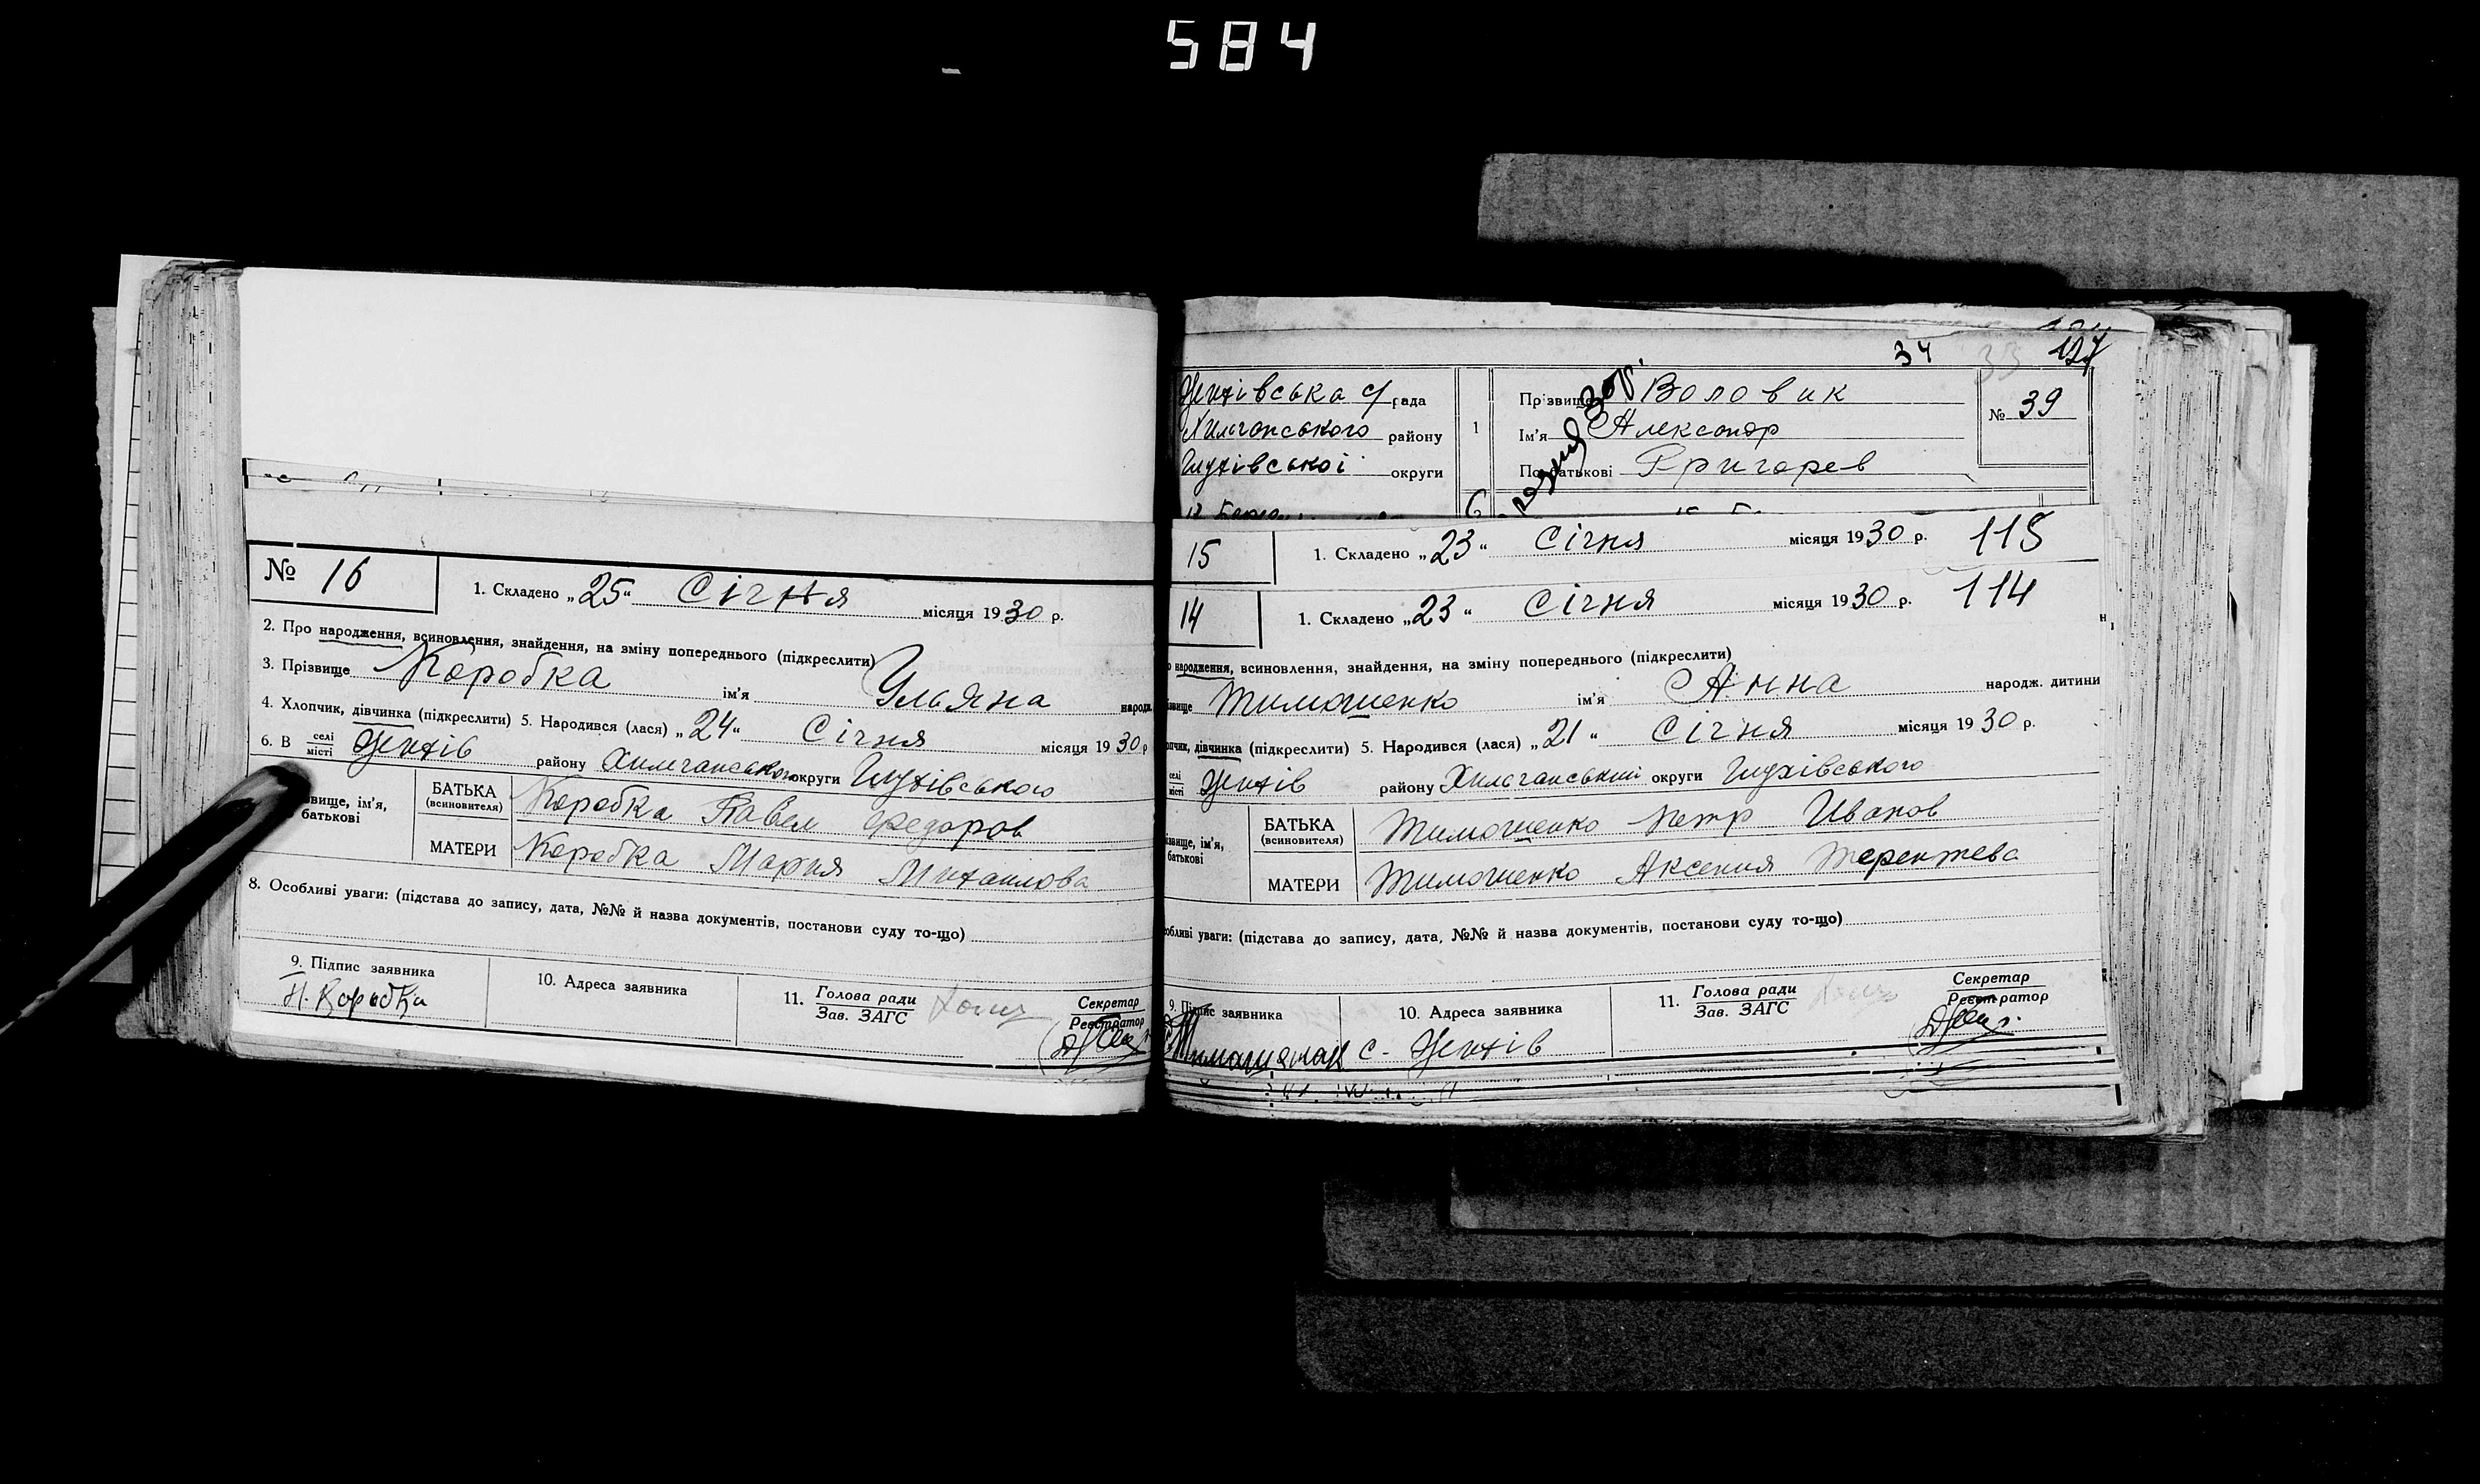 584
№ 16
1. Складено „25“ Січня місяця 1930 р.
2. Про народження, всиновлення, знайдення, на зміну попереднього (підкреслити)
3. Прізвище Коробка ім'я Ульяна народж.
4. Хлопчик, дівчинка (підкреслити) 5. Народився (лася) „24“ Січня місяця 1930 р
6. В селі місті району Хильчанського округи Глухівського
звище, ім'я, батькові
БАТЬКА (всиновителя) Коробка Павел Федоров
МАТЕРИ Коробка Мария Михаилова
8. Особливі уваги: (підстава до запису, дата, №№ й назва документів, постанови суду то-що)
9. Підпис заявника
Коробка
10. Адреса заявника
11. Голова ради Зав. ЗАГС
Секретар Реєстратор
34 33
рада
Хильчанського району
Глухівської округи
1
Прізвище Воловик
Ім'я Александр
По батькові Григорев
№ 39
15
1. Складено „23“ Січня місяця 1930 р. 115
14
1. Складено „23“ Січня місяця 1930 р. 114
народження, всиновлення, знайдення, на зміну попереднього (підкреслити)
звище Тимошенко ім'я Анна народж. дитини
пчик, дівчинка (підкреслити) 5. Народився (лася) „21“ Січня місяця 1930 р.
селі місті району Хильчанський округи Глухівського
ізвище, ім'я, батькові
БАТЬКА (всиновителя) Тимошенко Петр Иванов
МАТЕРИ Тимошенко Аксения Терентева
обливі уваги: (підстава до запису, дата, №№ й назва документів, постанови суду то-що)
9. Підпис заявника
10. Адреса заявника
с.
11. Голова ради Зав. ЗАГС
Секретар Реєстратор